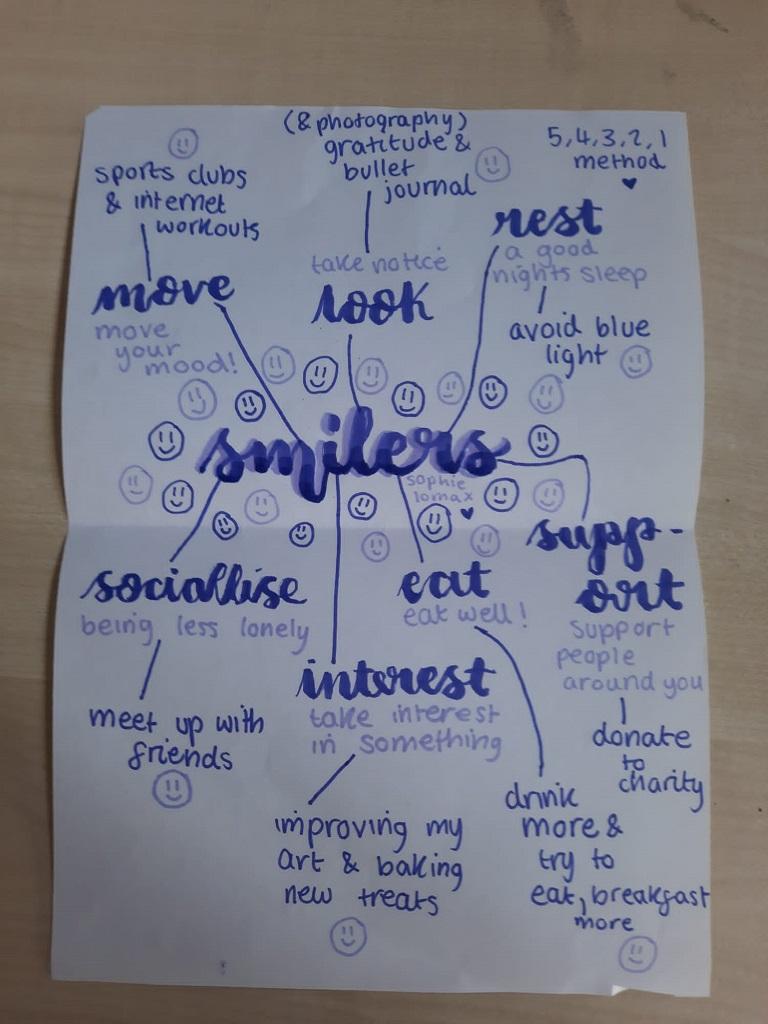 (& photography)
gratitude &
bullet
journal
5,4,3,2,1
method
sports clubs
& internet
workouts
rest
a good
nights sleep
avoid blue
light
take notice
look
move
move
your
mood!
smilers
sophie
lomax
supp-
ort
support
people
around you
donate
to
charity
sociallise
being less lonely
meet up with
friends
eat
eat well!
drink
more &
try to
eat, breakfast
more
interest
take interest
in something
improving my
art & baking
new treats